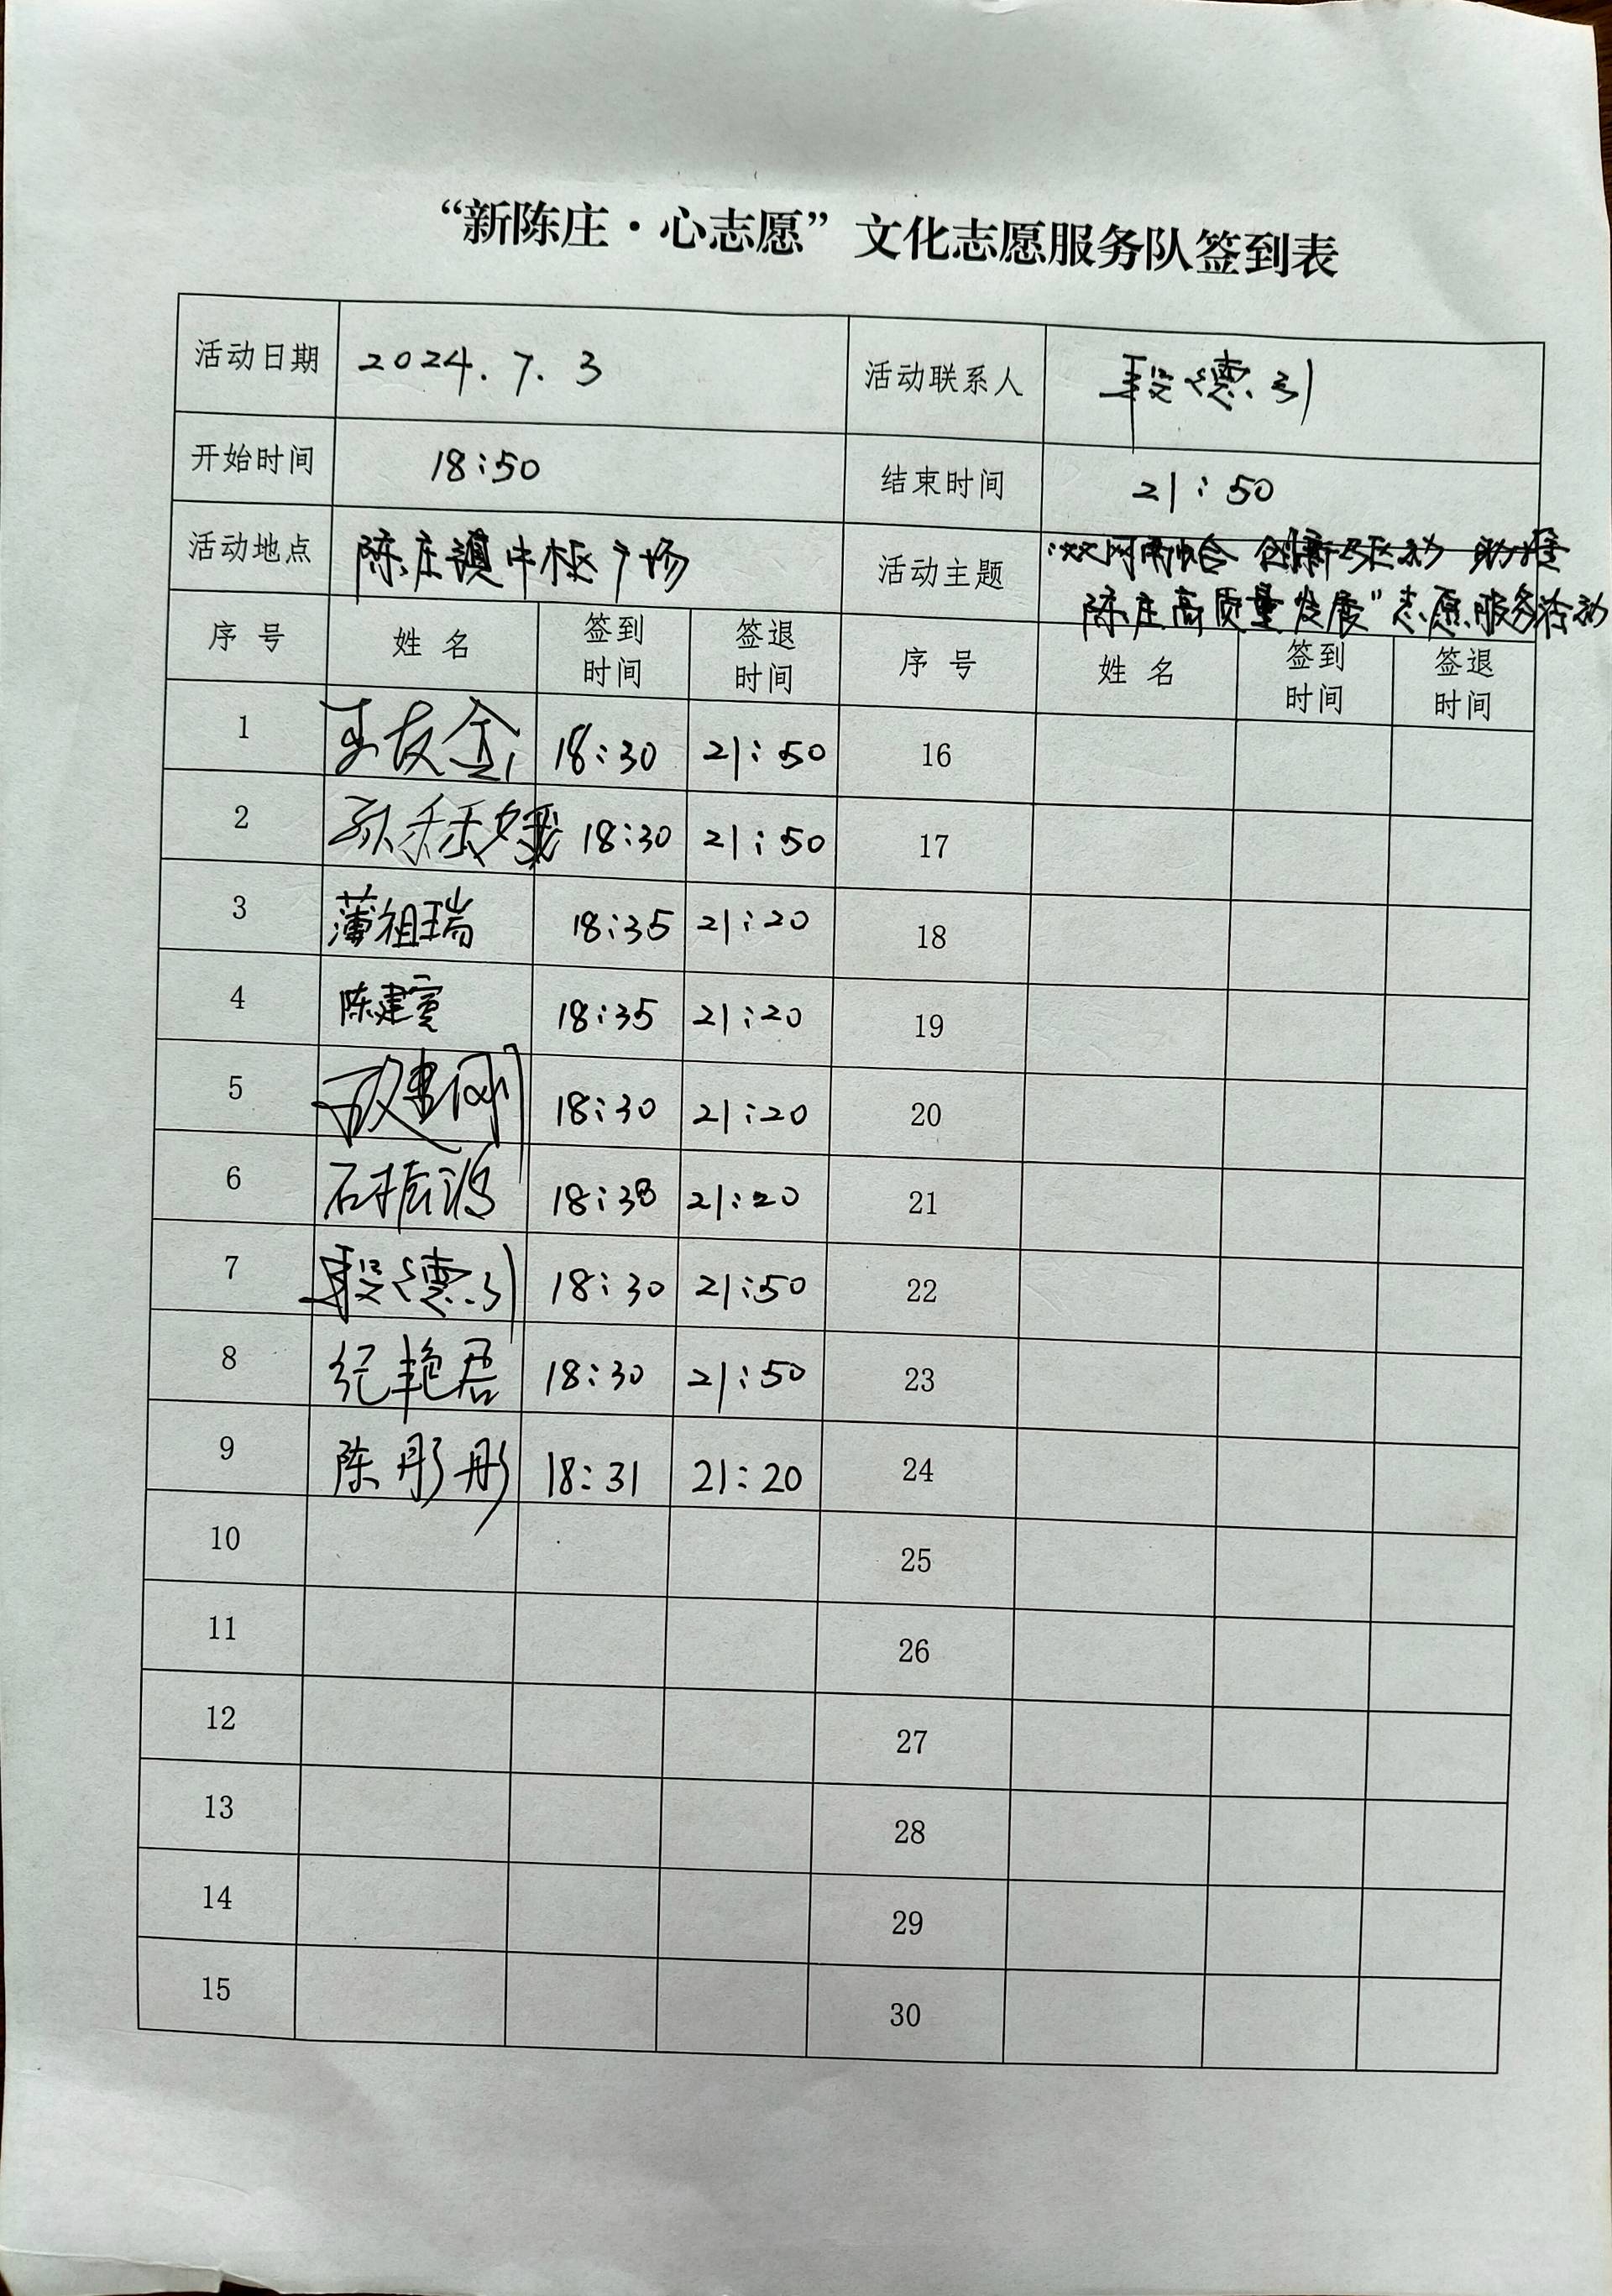 “新陈庄·心志愿”文化志愿服务队签到表
活动日期 2024.7.3 活动联系人 段德引
开始时间 18:50 结束时间 21:50
活动地点 陈庄镇中枢广场 活动主题 “双网融合 创新驱动 助推
陈庄高质量发展”志愿服务活动
序号 姓名 签到时间 签退时间 序号 姓名 签到时间 签退时间
1 王友金 18:30 21:50 16
2 孙秀娥 18:30 21:50 17
3 薄祖瑞 18:35 21:20 18
4 陈建寅 18:35 21:20 19
5 18:30 21:20 20
6 石振鸿 18:38 21:20 21
7 段德引 18:30 21:50 22
8 纪艳君 18:30 21:50 23
9 陈彤彤 18:31 21:20 24
10 25
11 26
12 27
13 28
14 29
15 30